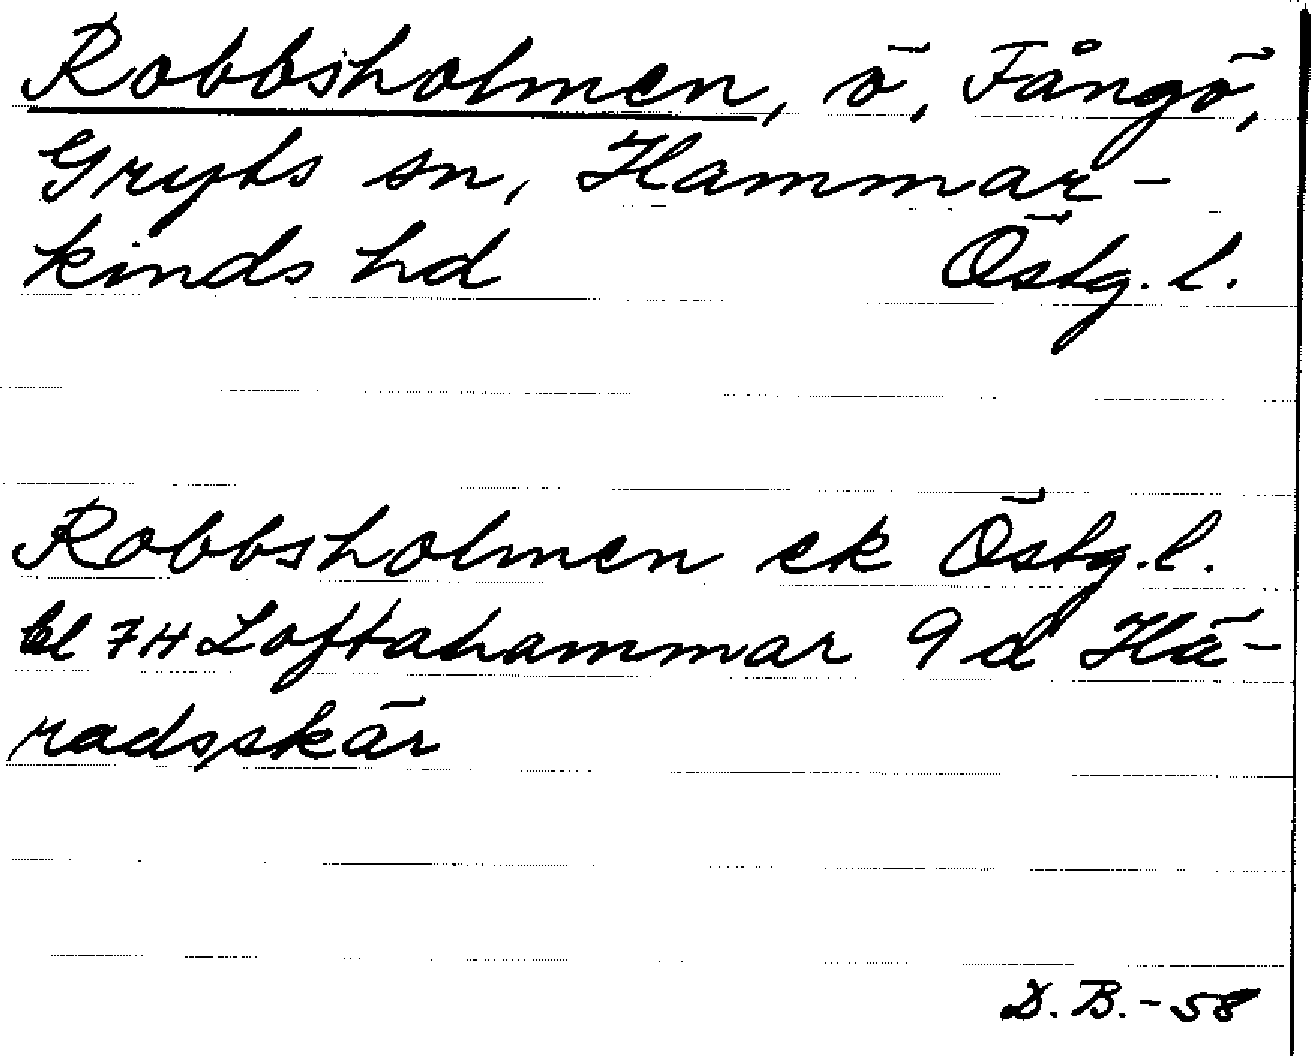 Robbsholmen, ö, Fångö,
Gryts sn, Hammar-
kinds hd Östg. l.
Robbsholmen ek Östg. l.
bl 7H Loftahammar 9 d Hä-
radsskär
D. B. - 58